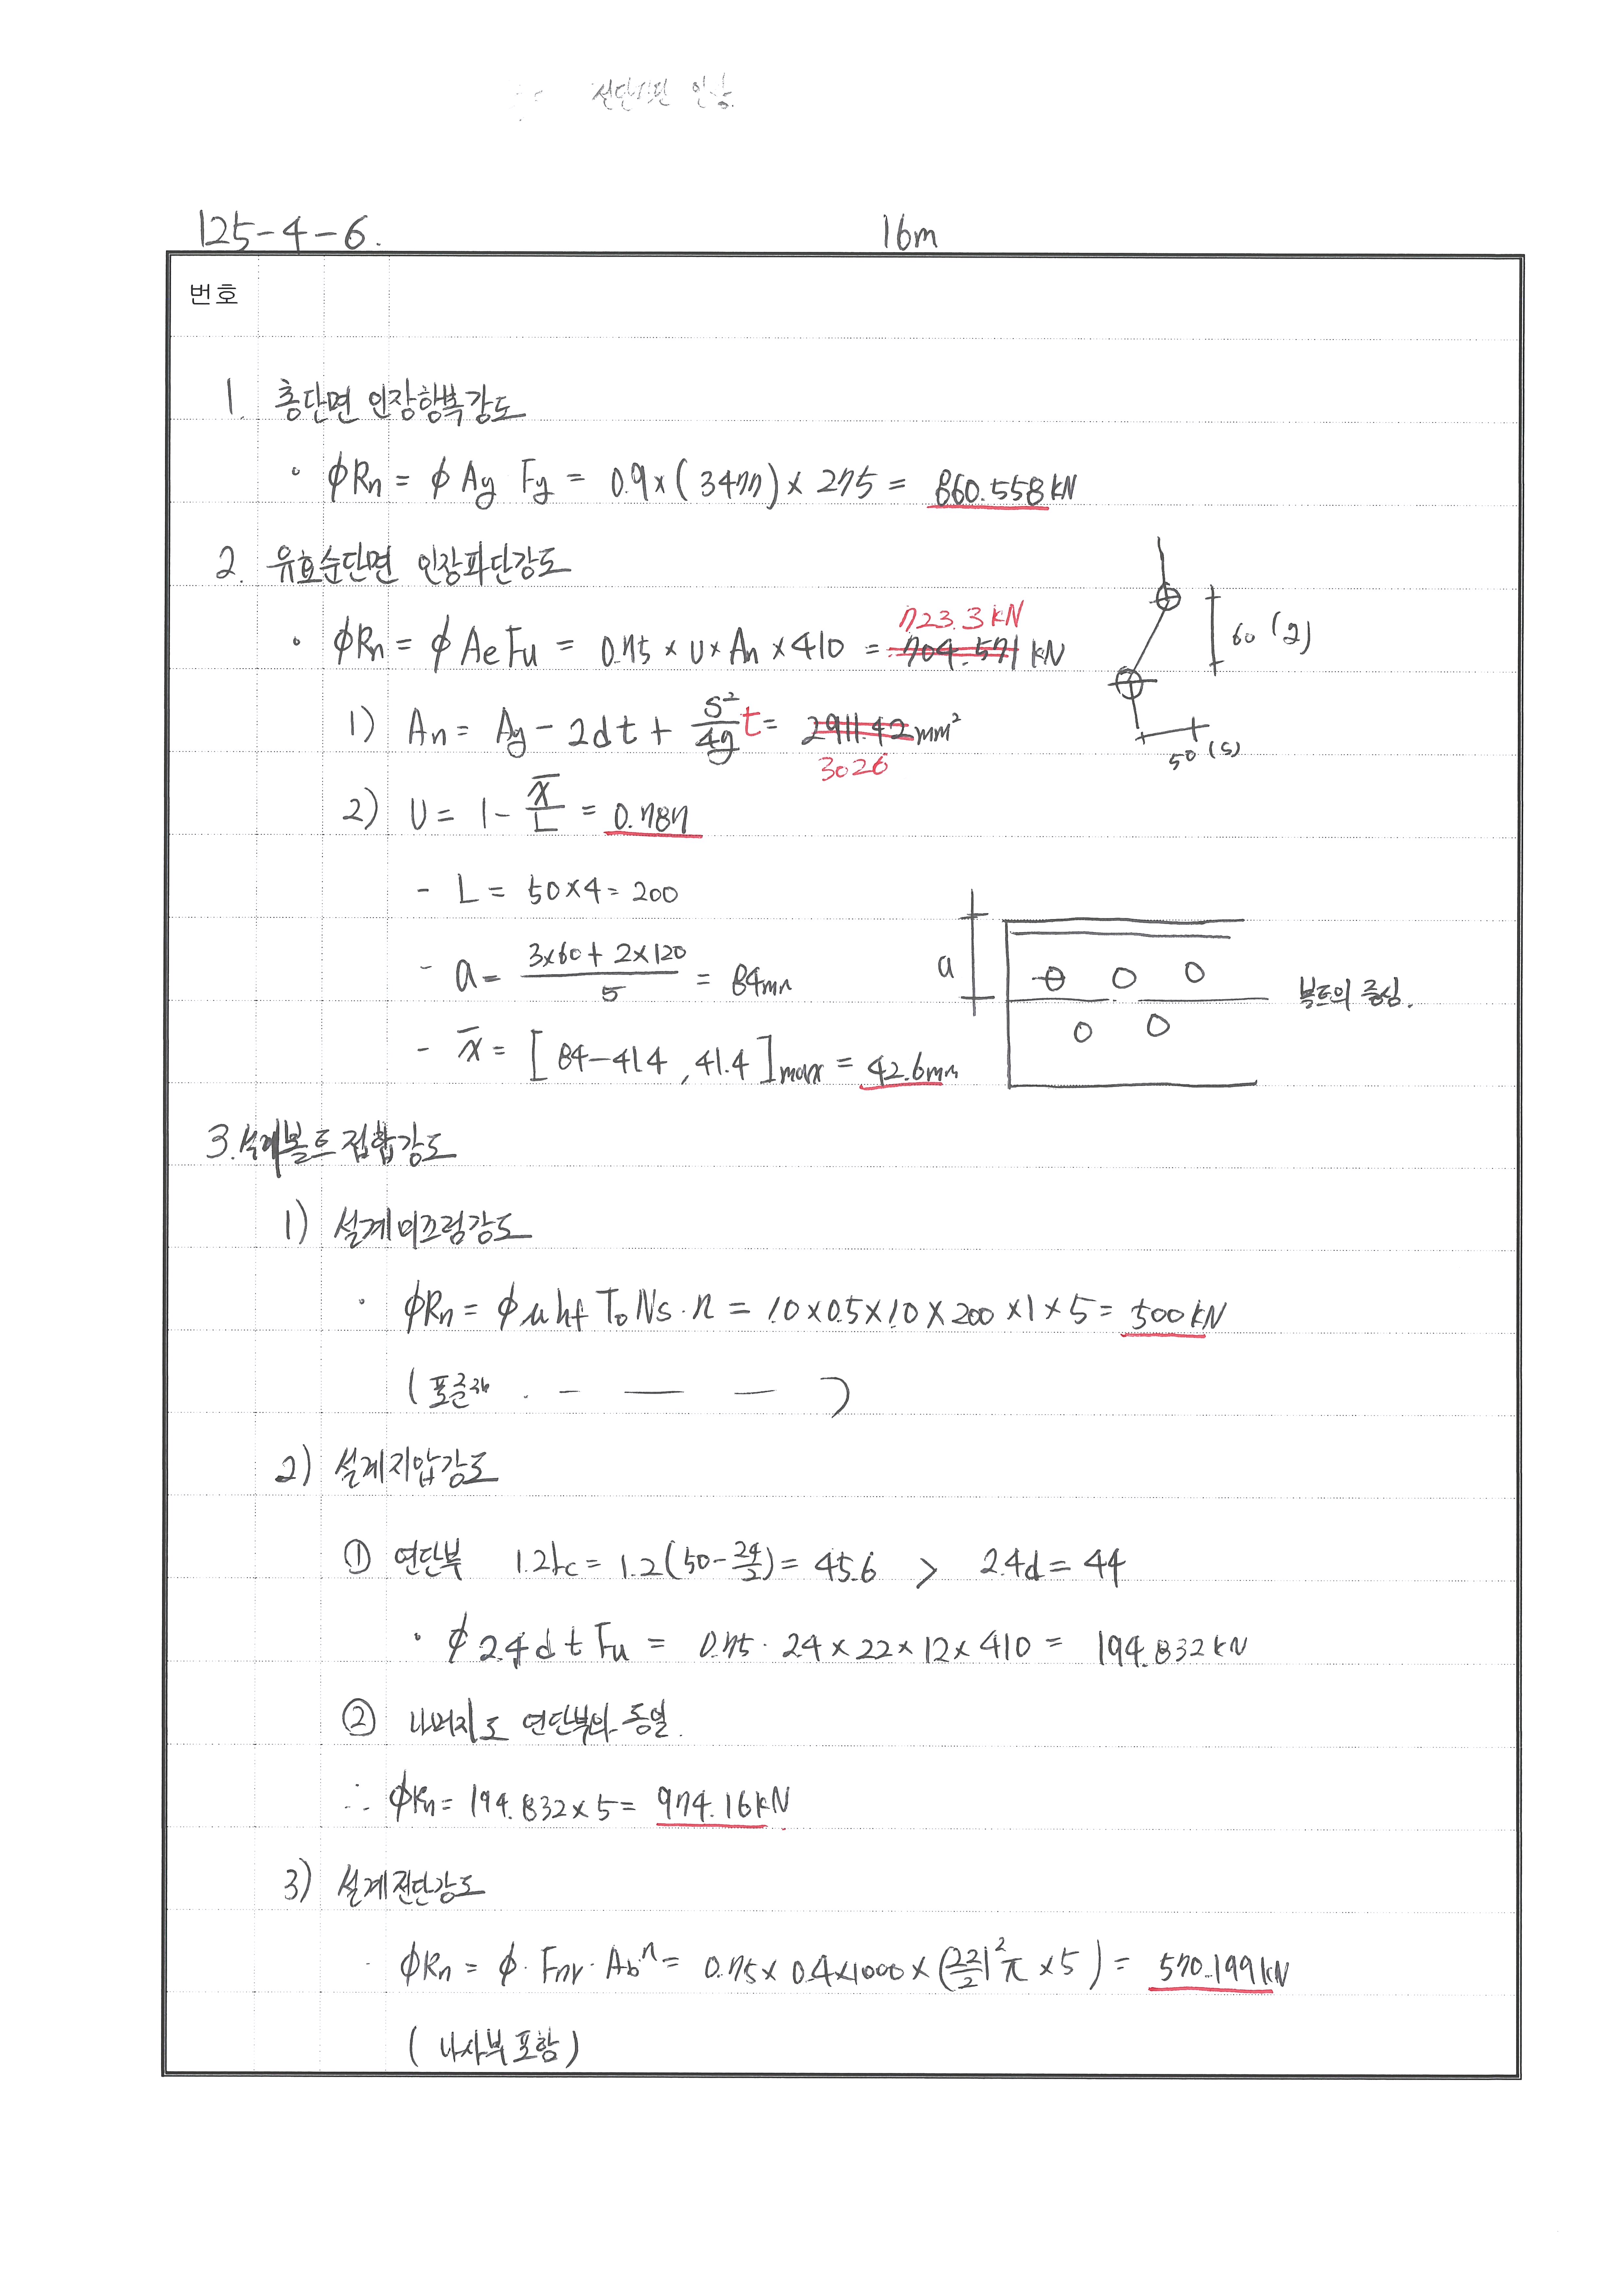 전단파단 인장
125-4-6. 16m
번호
1. 총단면 인장항복강도
· φRn = φ Ag Fy = 0.9×(3477)×275 = 860.558kN
2. 유효순단면 인장파단강도
60 (g)
723.3kN
· φRn = φ Ae Fu = 0.75 × U × An × 410 = 704.571 kN
1) An = Ag - 2dt + s²/4g t = 2911.42mm²
50 (s)
3026
2) U = 1 - x̄/L = 0.787
- L = 50×4 = 200
- a = (3×60 + 2×120)/5 = 84mm
a
볼트의 중심.
- x̄ = [84-41.4, 41.4]max = 42.6mm
3. 설계볼트접합강도
1) 설계미끄럼강도
· φRn = φ μ hf To Ns · n = 1.0×0.5×1.0×200×1×5 = 500kN
( 표준구멍 . - — - )
2) 설계지압강도
① 연단부 1.2Lc = 1.2(50-24/2) = 45.6 > 2.4d = 44
· φ2.4dtFu = 0.75·2.4×22×12×410 = 194.832kN
② 나머지도 연단부와 동일.
∴ φRn = 194.832×5 = 974.16kN
3) 설계전단강도
· φRn = φ·Fnv·Ab n = 0.75×0.4×1000×(22/2)²π×5) = 570.199kN
( 나사부 포함 )